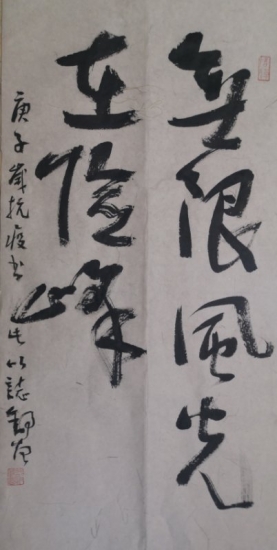 無限風光
在险峰
庚子歲抗疫书此以誌